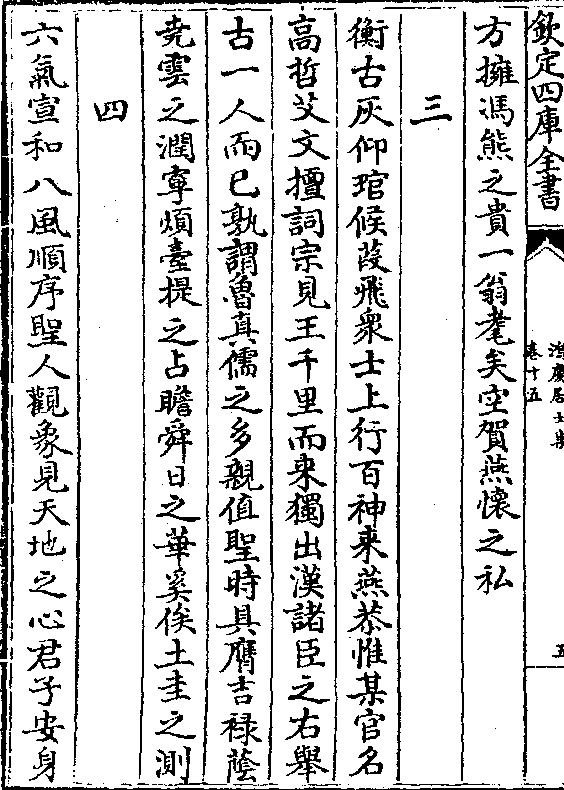 欽定四庫全書
鴻慶居士集
卷十五
五
方擁馮熊之貴一翁耄矣空賀燕懷之私
三
衡古灰仰琯候葭飛衆士上行百神来燕恭惟某官名
高哲艾文擅詞宗見王千里而来獨出漢諸臣之右舉
古一人而已孰謂魯真儒之多親值聖時具膺吉祿蔭
堯雲之潤寧煩臺提之占瞻舜日之華奚俟土圭之測
四
六氣宣和八風順序聖人觀象見天地之心君子安身